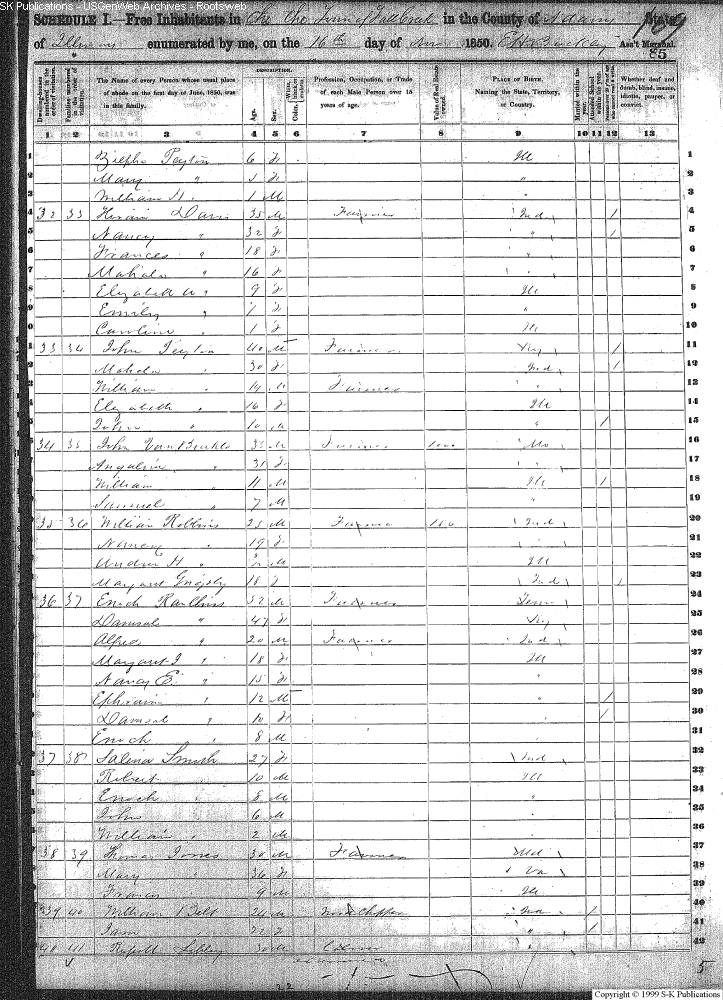 SK Publications - USGenWeb Archives - Rootsweb
SCHEDULE I.—Free Inhabitants in in the County of Adams State
of Illinois enumerated by me, on the 16th day of 1850. Ass't Marshal.
109
85
Dwelling-houses numbered in the order of visitation.
Families numbered in the order of visitation.
The Name of every Person whose usual place of abode on the first day of June, 1850, was in this family.
DESCRIPTION.
Age.
Sex.
Color, White, black, or mulatto.
Profession, Occupation, or Trade of each Male Person over 15 years of age.
Value of Real Estate owned.
PLACE OF BIRTH. Naming the State, Territory, or Country.
Married within the year.
Attended School within the year.
Whether deaf and dumb, blind, insane, idiotic, pauper, or convict.
1 2 3 4 5 6 7 8 9 10 11 12 13
1 Zilpha Peyton 6 F Ill 1
2 Mary " 3 F " 2
3 William H. 1 M " 3
4 32 33 Hiram Davis 35 M Farmer Ind / 4
5 Nancy " 32 F " / 5
6 Frances " 18 F " 6
7 Mahala " 16 F " 7
8 Elizabeth A " 9 F Ill 8
9 Emily " 1 F " 9
10 Caroline " 1 F Ill 10
11 33 34 John Peyton 40 M Farmer Virg / 11
12 Mahala 30 F Ind / 12
13 William " 19 M Farmer " 13
14 Elizabeth " 16 F Ill 14
15 John " 10 M " / 15
16 34 35 John 35 M Farmer 1000 Mo 16
17 Angaline " 31 F " 17
18 William " 11 M Ill / 18
19 Samuel " 7 M " 19
20 35 36 William Robbins 25 M Farmer 160 Ind 20
21 Nancy " 19 F " 21
22 Andrew H " M Ill 22
23 Margaret 18 F Ind / 23
24 36 37 Enoch Rawlins 52 M Farmer Tenn 24
25 Damsal " 47 F Virg 25
26 Alfred " 20 M Farmer Ind 26
27 Margaret J " 18 F Ill 27
28 Nancy E. " 15 F " 28
29 Ephraim " 12 M " / 29
30 Damsal " 10 F " / 30
31 Enoch " 8 M 31
32 37 38 Salina Smith 27 F Ind 32
33 Robert 10 M Ill 33
34 Enoch " 8 M " 34
35 John " 6 M " 35
36 William " 2 M " 36
37 38 39 Thomas Jones 30 M Farmer Md 37
38 Mary " 36 F Va 38
39 Francis " 9 M Ill 39
40 39 40 William Belt 24 M Wood Chopper / 40
41 Jane 22 F " / 41
42 40 41 30 M 42
22
5
Copyright © 1999 S-K Publications